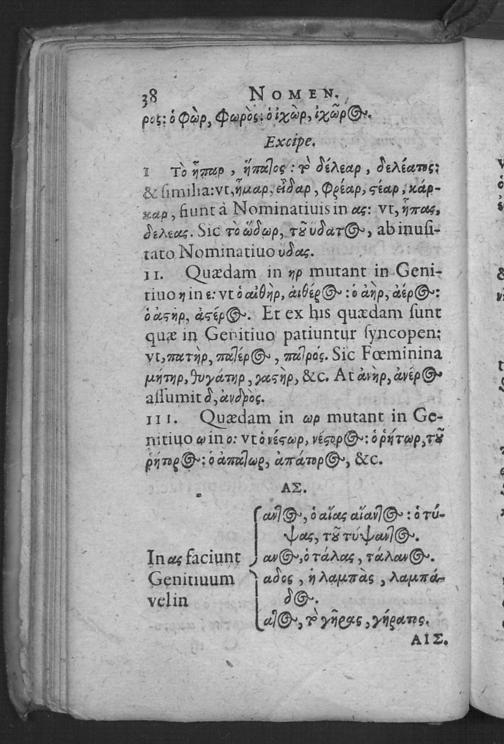 38 NOMEN.
ρος: ὁ φὼρ, φωρὸς: ὁ ἰχὼρ, ἰχῶρος.
Excipe.
I Τὸ ἧπαρ, ἥπατος: τὸ δέλεαρ, δελέατος:
& similia: vt, ἦμαρ, εἶδαρ, φρέαρ, στέαρ, κάρ-
καρ, fiunt à Nominatiuis in ας: vt, ἧπας,
δελεας. Sic τὸ ὕδωρ, τοῦ ὕδατος, ab inusi-
tato Nominatiuo ὕδας.
II. Quædam in ηρ mutant in Geni-
tiuo η in ε: vt ὁ αἰθὴρ, αἰθέρος: ὁ ἀὴρ, ἀέρος:
ὁ ἀστὴρ, ἀστέρος. Et ex his quædam sunt
quæ in Genitiuo patiuntur syncopen:
vt, πατὴρ, πατέρος, πατρός. Sic Fœminina
μήτηρ, θυγάτηρ, γαστὴρ, &c. At ἀνὴρ, ἀνέρος
assumit δ, ἀνδρὸς.
III. Quædam in ωρ mutant in Ge-
nitiuo ω in ο: vt ὁ νέστωρ, νέστορος: ὁ ῥήτωρ, τοῦ
ῥήτορος: ὁ ἀπάτωρ, ἀπάτορος, &c.
ΑΣ.
In ας faciunt
Genitiuum
vel in
αντος, ὁ αἴας αἴαντος: ὁ τύ-
ψας, τοῦ τύψαντος.
ανος, ὁ τάλας, τάλανος.
αδος, ἡ λαμπὰς, λαμπά-
δος.
ατος, τὸ γῆρας, γήρατος.
ΑΙΣ.